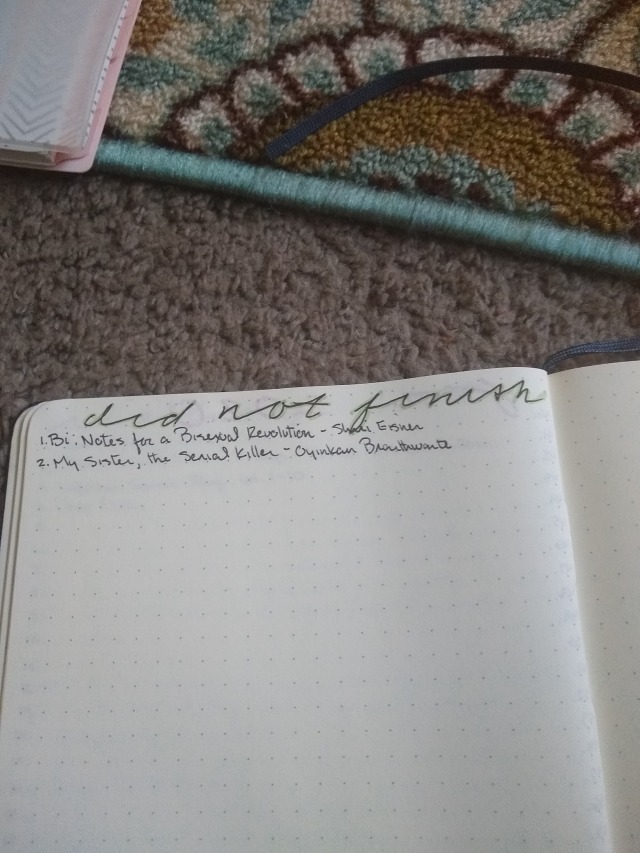 did not finish
1. Bi: Notes for a Bisexual Revolution - Shiri Eisner
2. My Sister, the Serial Killer - Oyinkan Braithwaite